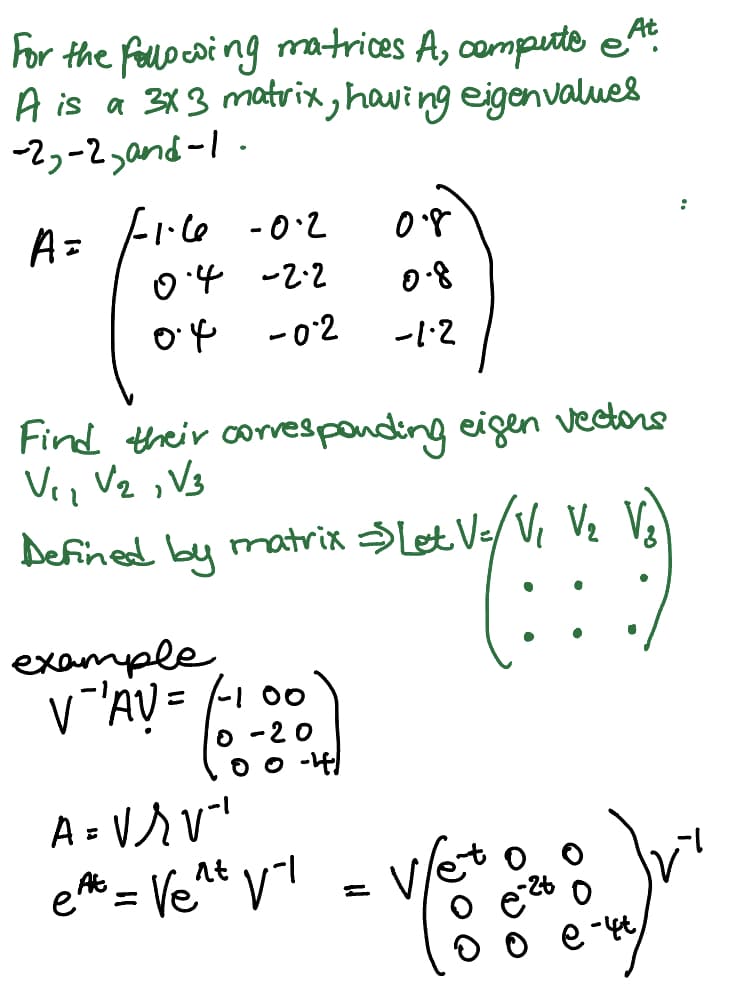 For the following matrices A, compute e^At.
A is a 3x3 matrix, having eigenvalues
-2, -2, and -1.
A = ( -1.6 -0.2 0.8
0.4 -2.2 0.8
0.4 -0.2 -1.2 )
Find their corresponding eigen vectors
V₁, V₂, V₃
Defined by matrix ⇒ Let V = ( V₁ V₂ V₃
. . .
. . . )
example
V⁻¹AV = ( -1 0 0
0 -2 0
0 0 -4 )
A = VΛV⁻¹
e^At = Ve^Λt V⁻¹ = V ( e^-t 0 0
0 e^-2t 0
0 0 e^-4t ) V⁻¹